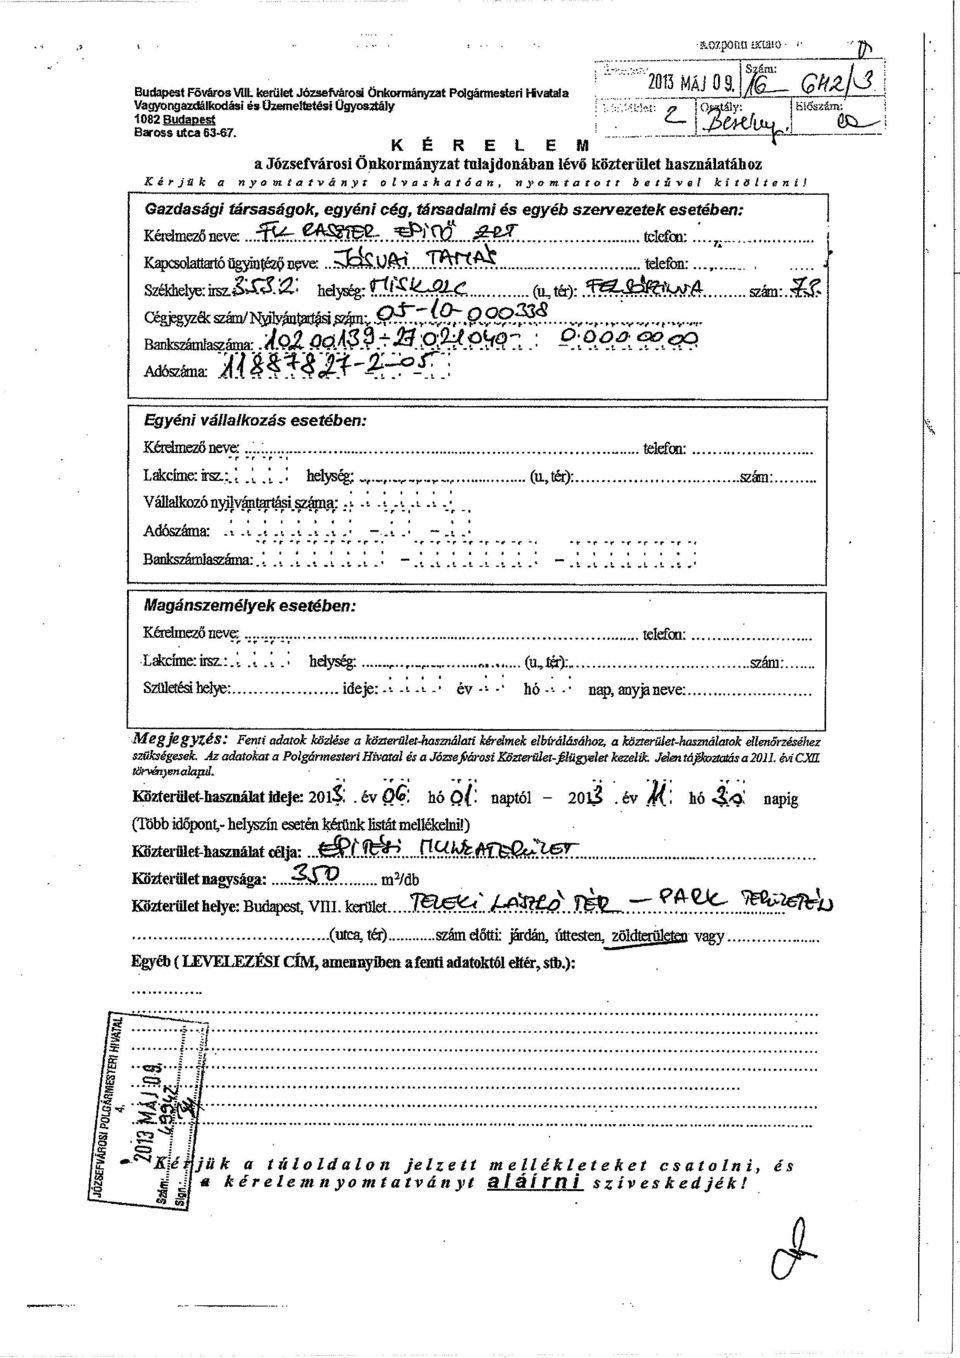 Központi iktató
2013 MÁJ 09. Szám: 16- 642/3
Osztály: Előszám:
2
Budapest Főváros VIII. kerület Józsefvárosi Önkormányzat Polgármesteri Hivatala
Vagyongazdálkodási és Üzemeltetési Ügyosztály
1082 Budapest
Baross utca 63-67.
K É R E L E M
a Józsefvárosi Önkormányzat tulajdonában lévő közterület használatához
Kérjük a nyomtatványt olvashatóan, nyomtatott betűvel kitölteni!
Gazdasági társaságok, egyéni cég, társadalmi és egyéb szervezetek esetében:
Kérelmező neve: ÉPÍTŐ ZRT telefon:
Kapcsolattartó ügyintéző neve: JÓSVAI TAMÁS telefon:
Székhelye: irsz. 3532 helység: MISKOLC (u., tér): FELSŐSZINVA szám: 73.
Cégjegyzék szám/ Nyilvántartási szám: 05-10-000338
Bankszámlaszáma: 10200139-27021040- 00000000
Adószáma: 11887827-2-05
Egyéni vállalkozás esetében:
Kérelmező neve: telefon:
Lakcíme: irsz.: helység: (u., tér): szám:
Vállalkozó nyilvántartási száma:
Adószáma: - -
Bankszámlaszáma: - -
Magánszemélyek esetében:
Kérelmező neve: telefon:
Lakcíme: irsz.: helység: (u., tér): szám:
Születési helye: ideje: év hó nap, anyja neve:
Megjegyzés: Fenti adatok közlése a közterület-használati kérelmek elbírálásához, a közterület-használatok ellenőrzéséhez
szükségesek. Az adatokat a Polgármesteri Hivatal és a Józsefvárosi Közterület-felügyelet kezelik. Jelen tájékoztatás a 2011. évi CXII.
törvényen alapul.
Közterület-használat ideje: 2013. év 06. hó 01. naptól – 2013. év 11. hó 30. napig
(Több időpont,- helyszín esetén kérünk listát mellékelni!)
Közterület-használat célja: ÉPÍTÉSI MUNKATERÜLET
Közterület nagysága: 350 m²/db
Közterület helye: Budapest, VIII. kerület TELEKI LÁSZLÓ TÉR – PARK TERÜLETÉN
(utca, tér) szám előtti: járdán, úttesten, zöldterületen vagy
Egyéb ( LEVELEZÉSI CÍM, amennyiben a fenti adatoktól eltér, stb.):
JÓZSEFVÁROSI POLGÁRMESTERI HIVATAL
4.
2013 MÁJ 09.
Szám:
Sign.:
Kérjük a túloldalon jelzett mellékleteket csatolni, és
a kérelemnyomtatványt aláírni szíveskedjék!